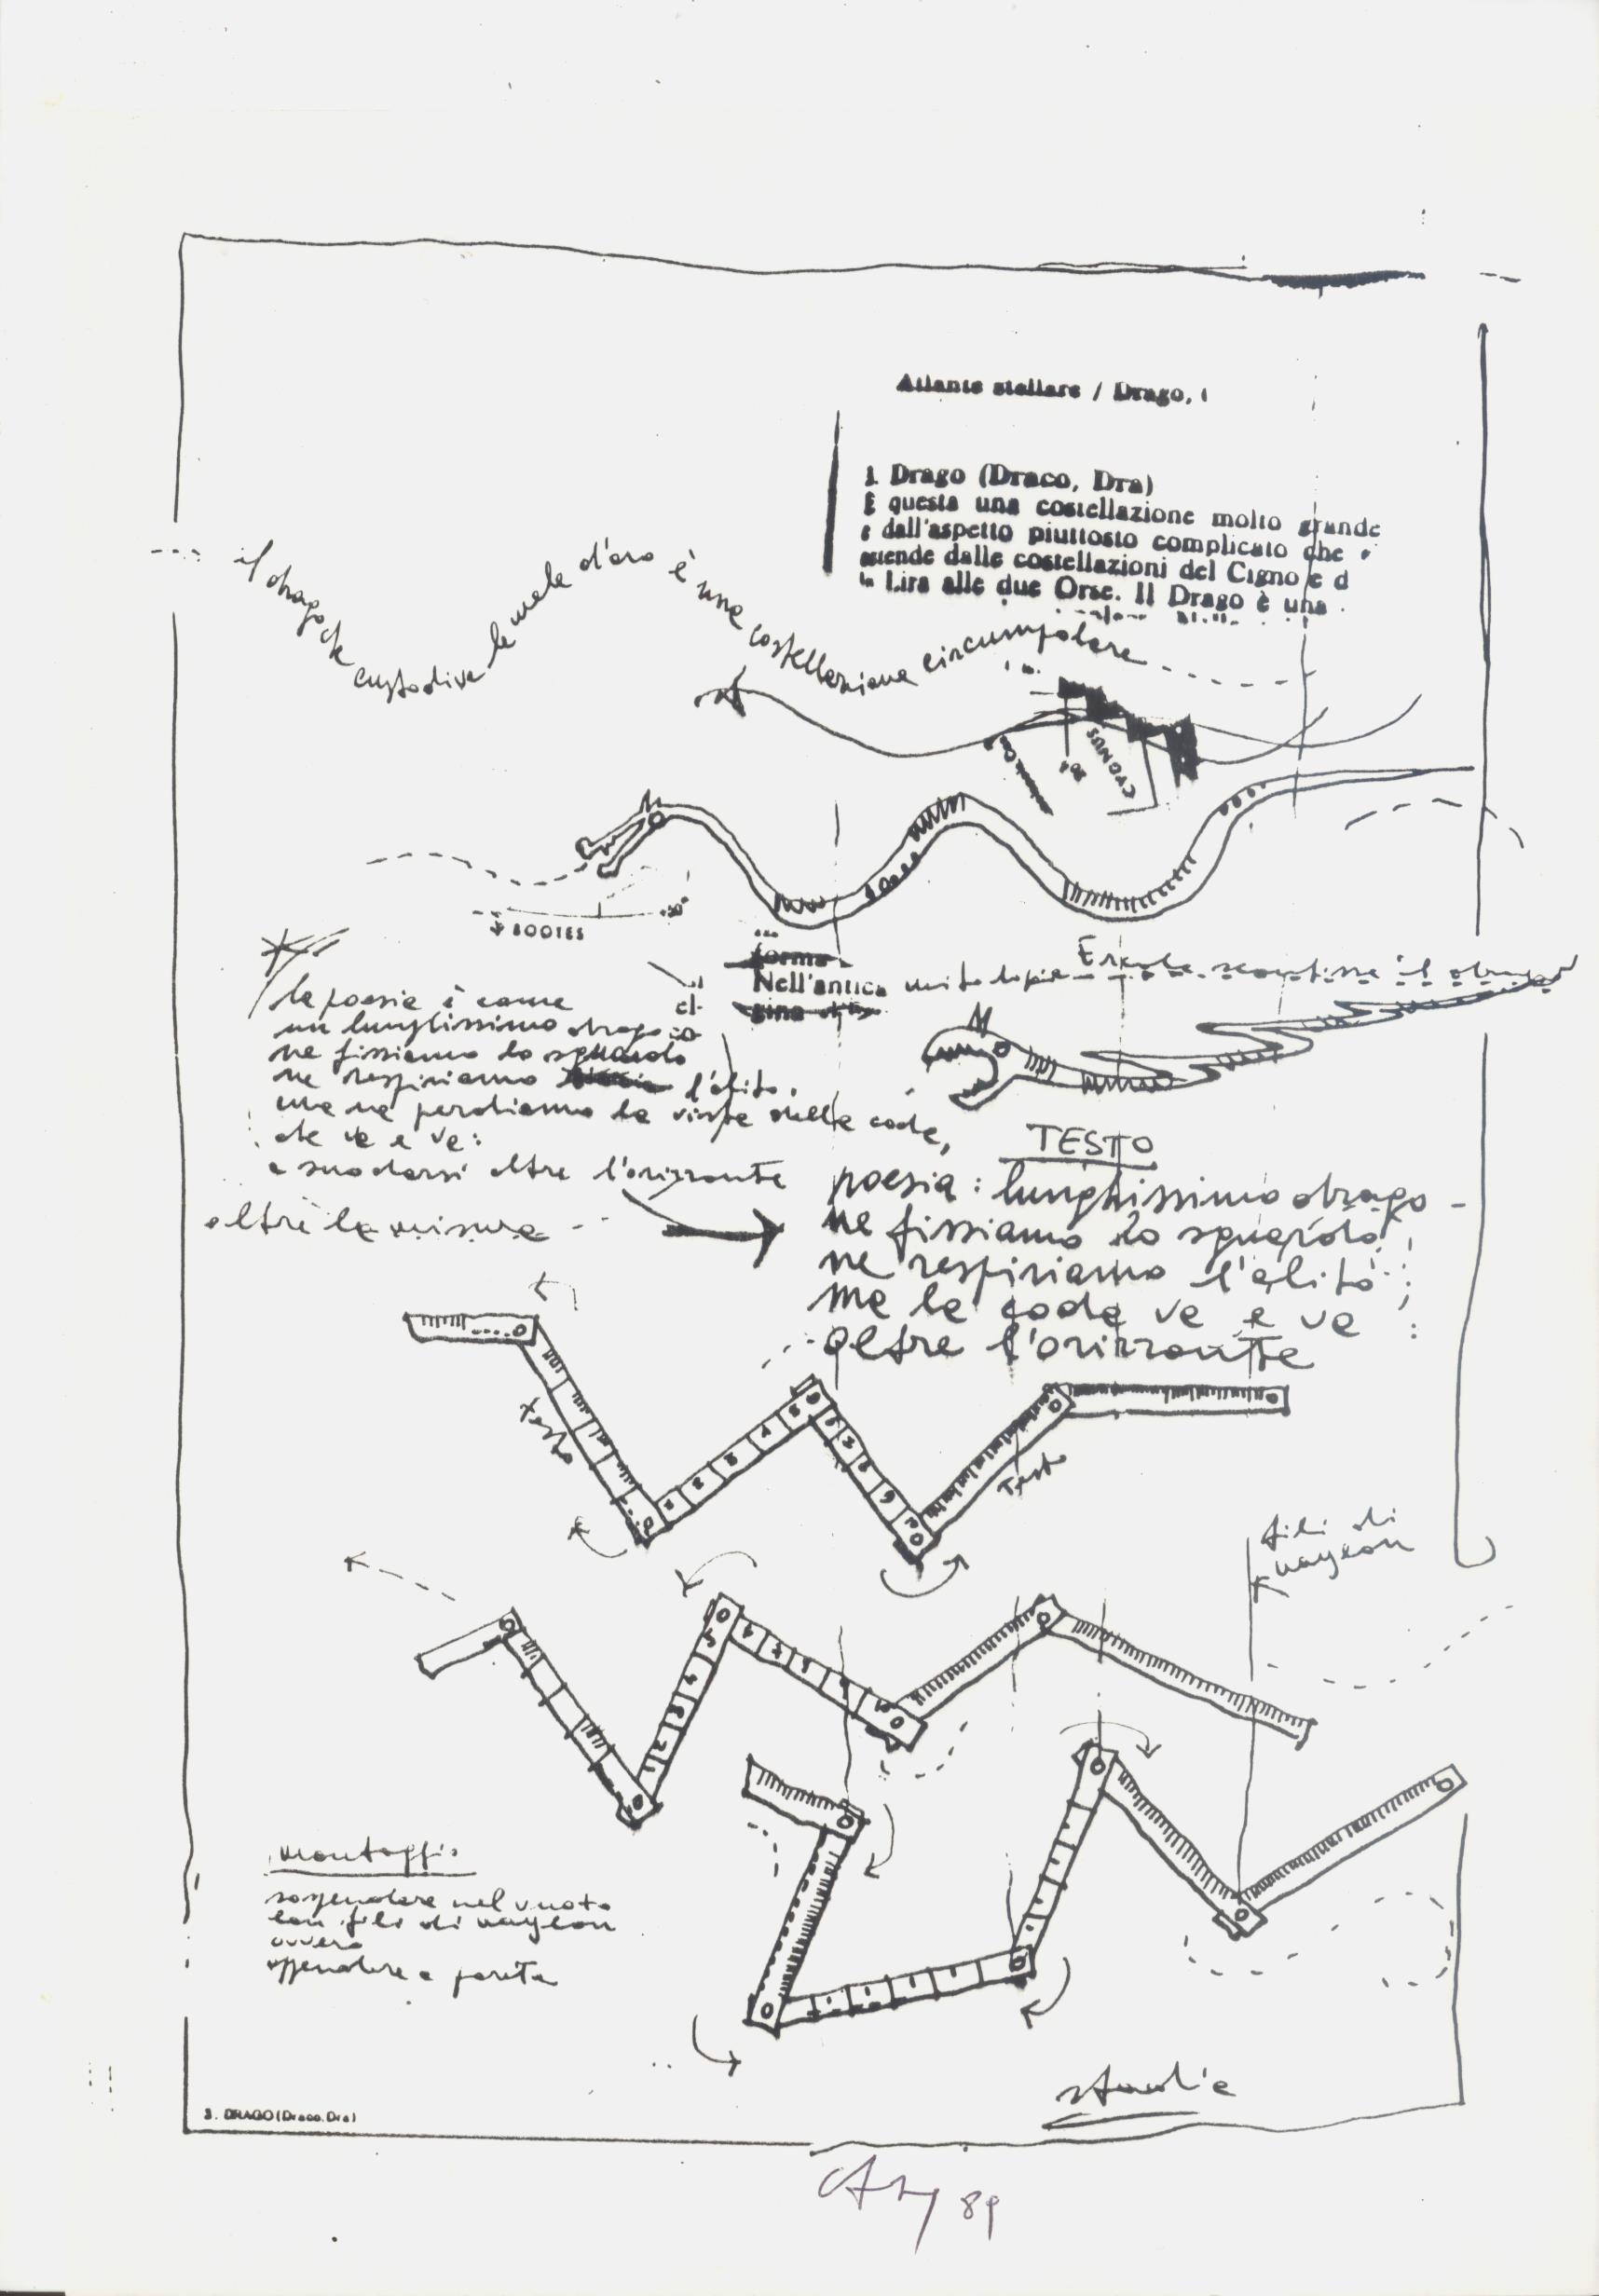 Atlante stellare / Drago,
3. Drago (Draco, Dra)
È questa una costellazione molto grande
e dall'aspetto piuttosto complicato che
estende dalle costellazioni del Cigno e d
la Lira alle due Orse. Il Drago è una
il drago che custodiva le mele d'oro è una costellazione circumpolare
CYGNUS
BOOTES
+50°
forma
Nell'antica mitologia Ercole sconfisse il drago
gina
la poesia è come
un lunghissimo drago
ne fissiamo lo sguardo
ne respiriamo l'alito,
ma ne perdiamo la vista della coda,
che va e va:
a snodarsi oltre l'orizzonte
oltre la misura
TESTO
poesia: lunghissimo drago -
ne fissiamo lo sguardo
ne respiriamo l'alito
ma la coda va e va
oltre l'orizzonte
testo
Testo
fili di
naylon
montaggio
sospendere nel vuoto
con fili di naylon
ovvero
appendere a parete
studio
3. DRAGO (Draco, Dra)
89